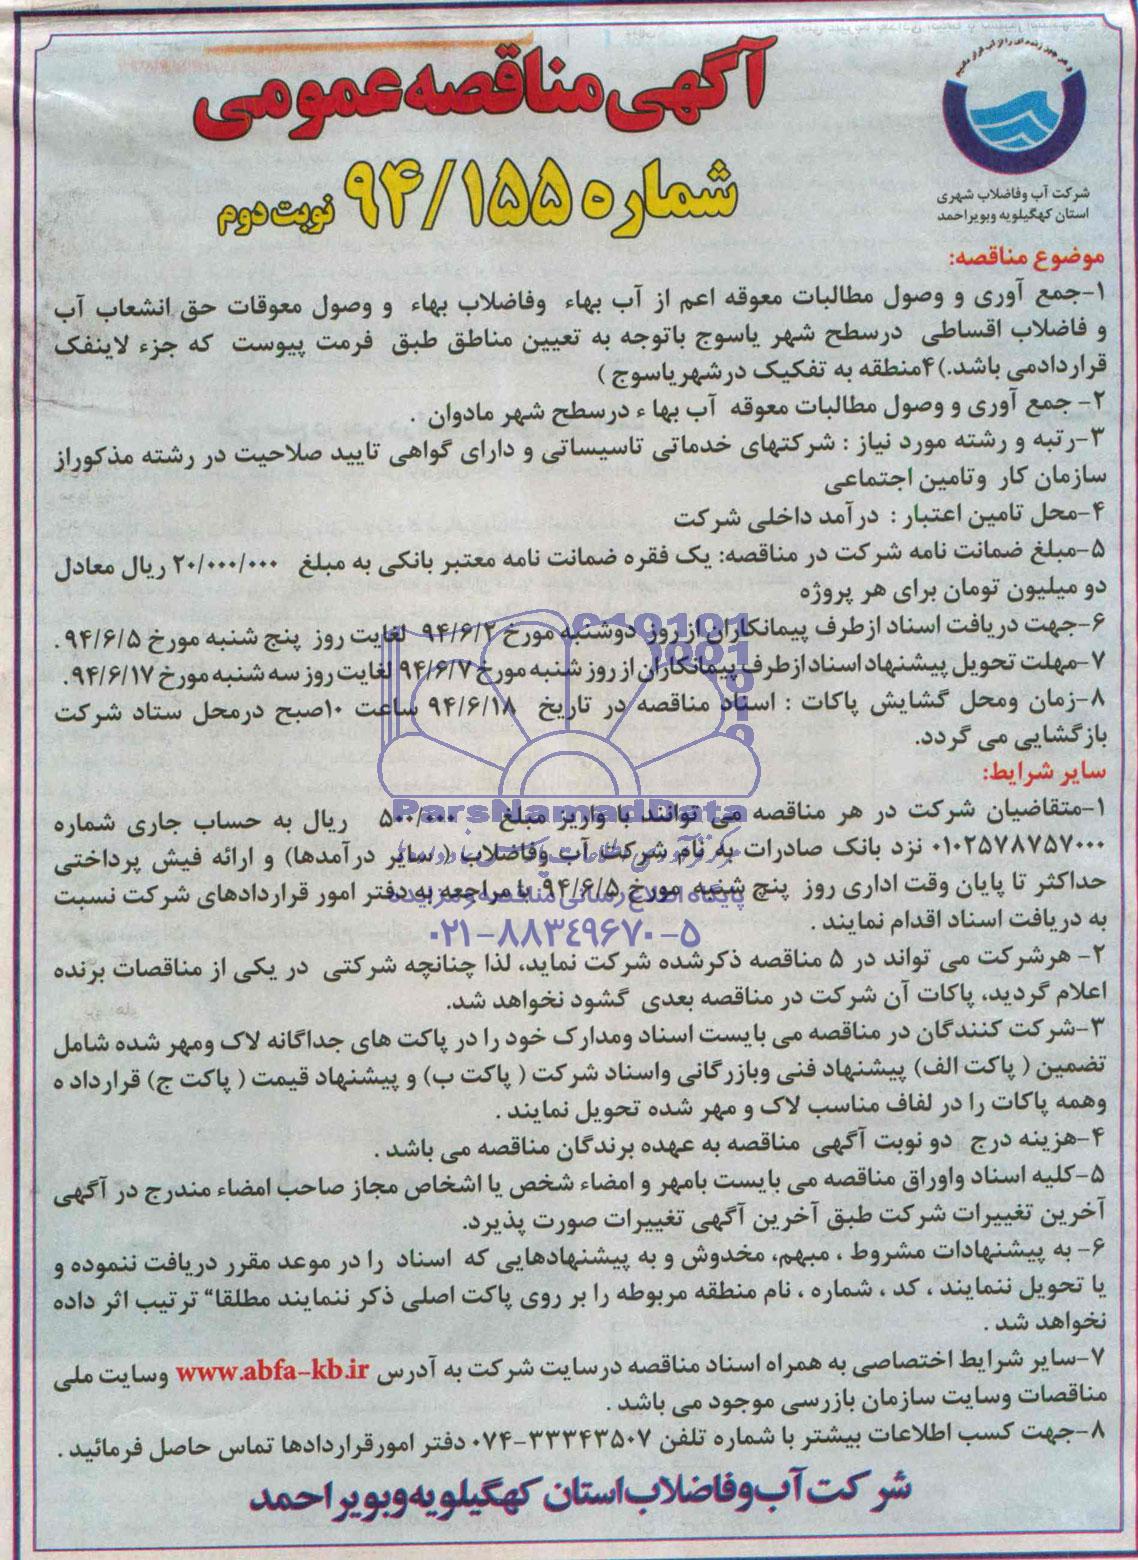 و هر چیز زنده ای را از آب قرار دادیم
شرکت آب وفاضلاب شهری
استان کهگیلویه وبویراحمد
آگهی مناقصه عمومی
شماره ۹۴/۱۵۵ نوبت دوم
موضوع مناقصه:
۱-جمع آوری و وصول مطالبات معوقه اعم از آب بهاء وفاضلاب بهاء و وصول معوقات حق انشعاب آب
و فاضلاب اقساطی درسطح شهر یاسوج باتوجه به تعیین مناطق طبق فرمت پیوست که جزء لاینفک
قراردادمی باشد.)۴منطقه به تفکیک درشهریاسوج )
۲- جمع آوری و وصول مطالبات معوقه آب بهاء درسطح شهر مادوان .
۳-رتبه و رشته مورد نیاز : شرکتهای خدماتی تاسیساتی و دارای گواهی تایید صلاحیت در رشته مذکوراز
سازمان کار وتامین اجتماعی
۴-محل تامین اعتبار : درآمد داخلی شرکت
۵-مبلغ ضمانت نامه شرکت در مناقصه: یک فقره ضمانت نامه معتبر بانکی به مبلغ ۲۰/۰۰۰/۰۰۰ ریال معادل
دو میلیون تومان برای هر پروژه
۶-جهت دریافت اسناد ازطرف پیمانکاران از روز دوشنبه مورخ ۹۴/۶/۲ لغایت روز پنج شنبه مورخ ۹۴/۶/۵ .
۷-مهلت تحویل پیشنهاد اسناد ازطرف پیمانکاران از روز شنبه مورخ ۹۴/۶/۷ لغایت روز سه شنبه مورخ ۹۴/۶/۱۷ .
۸-زمان ومحل گشایش پاکات : اسناد مناقصه در تاریخ ۹۴/۶/۱۸ ساعت ۱۰صبح درمحل ستاد شرکت
بازگشایی می گردد.
سایر شرایط:
۱-متقاضیان شرکت در هر مناقصه می توانند با واریز مبلغ ۵۰۰/۰۰۰ ریال به حساب جاری شماره
۰۱۰۲۵۷۸۷۵۷۰۰۰ نزد بانک صادرات به نام شرکت آب وفاضلاب ( سایر درآمدها) و ارائه فیش پرداختی
حداکثر تا پایان وقت اداری روز پنج شنبه مورخ ۹۴/۶/۵ با مراجعه به دفتر امور قراردادهای شرکت نسبت
به دریافت اسناد اقدام نمایند .
۲- هرشرکت می تواند در ۵ مناقصه ذکرشده شرکت نماید، لذا چنانچه شرکتی در یکی از مناقصات برنده
اعلام گردید، پاکات آن شرکت در مناقصه بعدی گشود نخواهد شد.
۳-شرکت کنندگان در مناقصه می بایست اسناد ومدارک خود را در پاکت های جداگانه لاک ومهر شده شامل
تضمین ( پاکت الف) پیشنهاد فنی وبازرگانی واسناد شرکت ( پاکت ب) و پیشنهاد قیمت ( پاکت ج) قرارداد ه
وهمه پاکات را در لفاف مناسب لاک و مهر شده تحویل نمایند .
۴-هزینه درج دو نوبت آگهی مناقصه به عهده برندگان مناقصه می باشد .
۵-کلیه اسناد واوراق مناقصه می بایست بامهر و امضاء شخص یا اشخاص مجاز صاحب امضاء مندرج در آگهی
آخرین تغییرات شرکت طبق آخرین آگهی تغییرات صورت پذیرد.
۶- به پیشنهادات مشروط ، مبهم، مخدوش و به پیشنهادهایی که اسناد را در موعد مقرر دریافت ننموده و
یا تحویل ننمایند ، کد ، شماره ، نام منطقه مربوطه را بر روی پاکت اصلی ذکر ننمایند مطلقا“ ترتیب اثر داده
نخواهد شد .
۷-سایر شرایط اختصاصی به همراه اسناد مناقصه درسایت شرکت به آدرس www.abfa-kb.ir وسایت ملی
مناقصات وسایت سازمان بازرسی موجود می باشد .
۸-جهت کسب اطلاعات بیشتر با شماره تلفن ۳۳۳۴۳۵۰۷-۰۷۴ دفتر امورقراردادها تماس حاصل فرمائید .
شرکت آب وفاضلاب استان کهگیلویه وبویراحمد
ParsNamadData
پایگاه اطلاع رسانی مناقصه و مزایده
۰۲۱-۸۸۳٤۹۶۷۰-۵